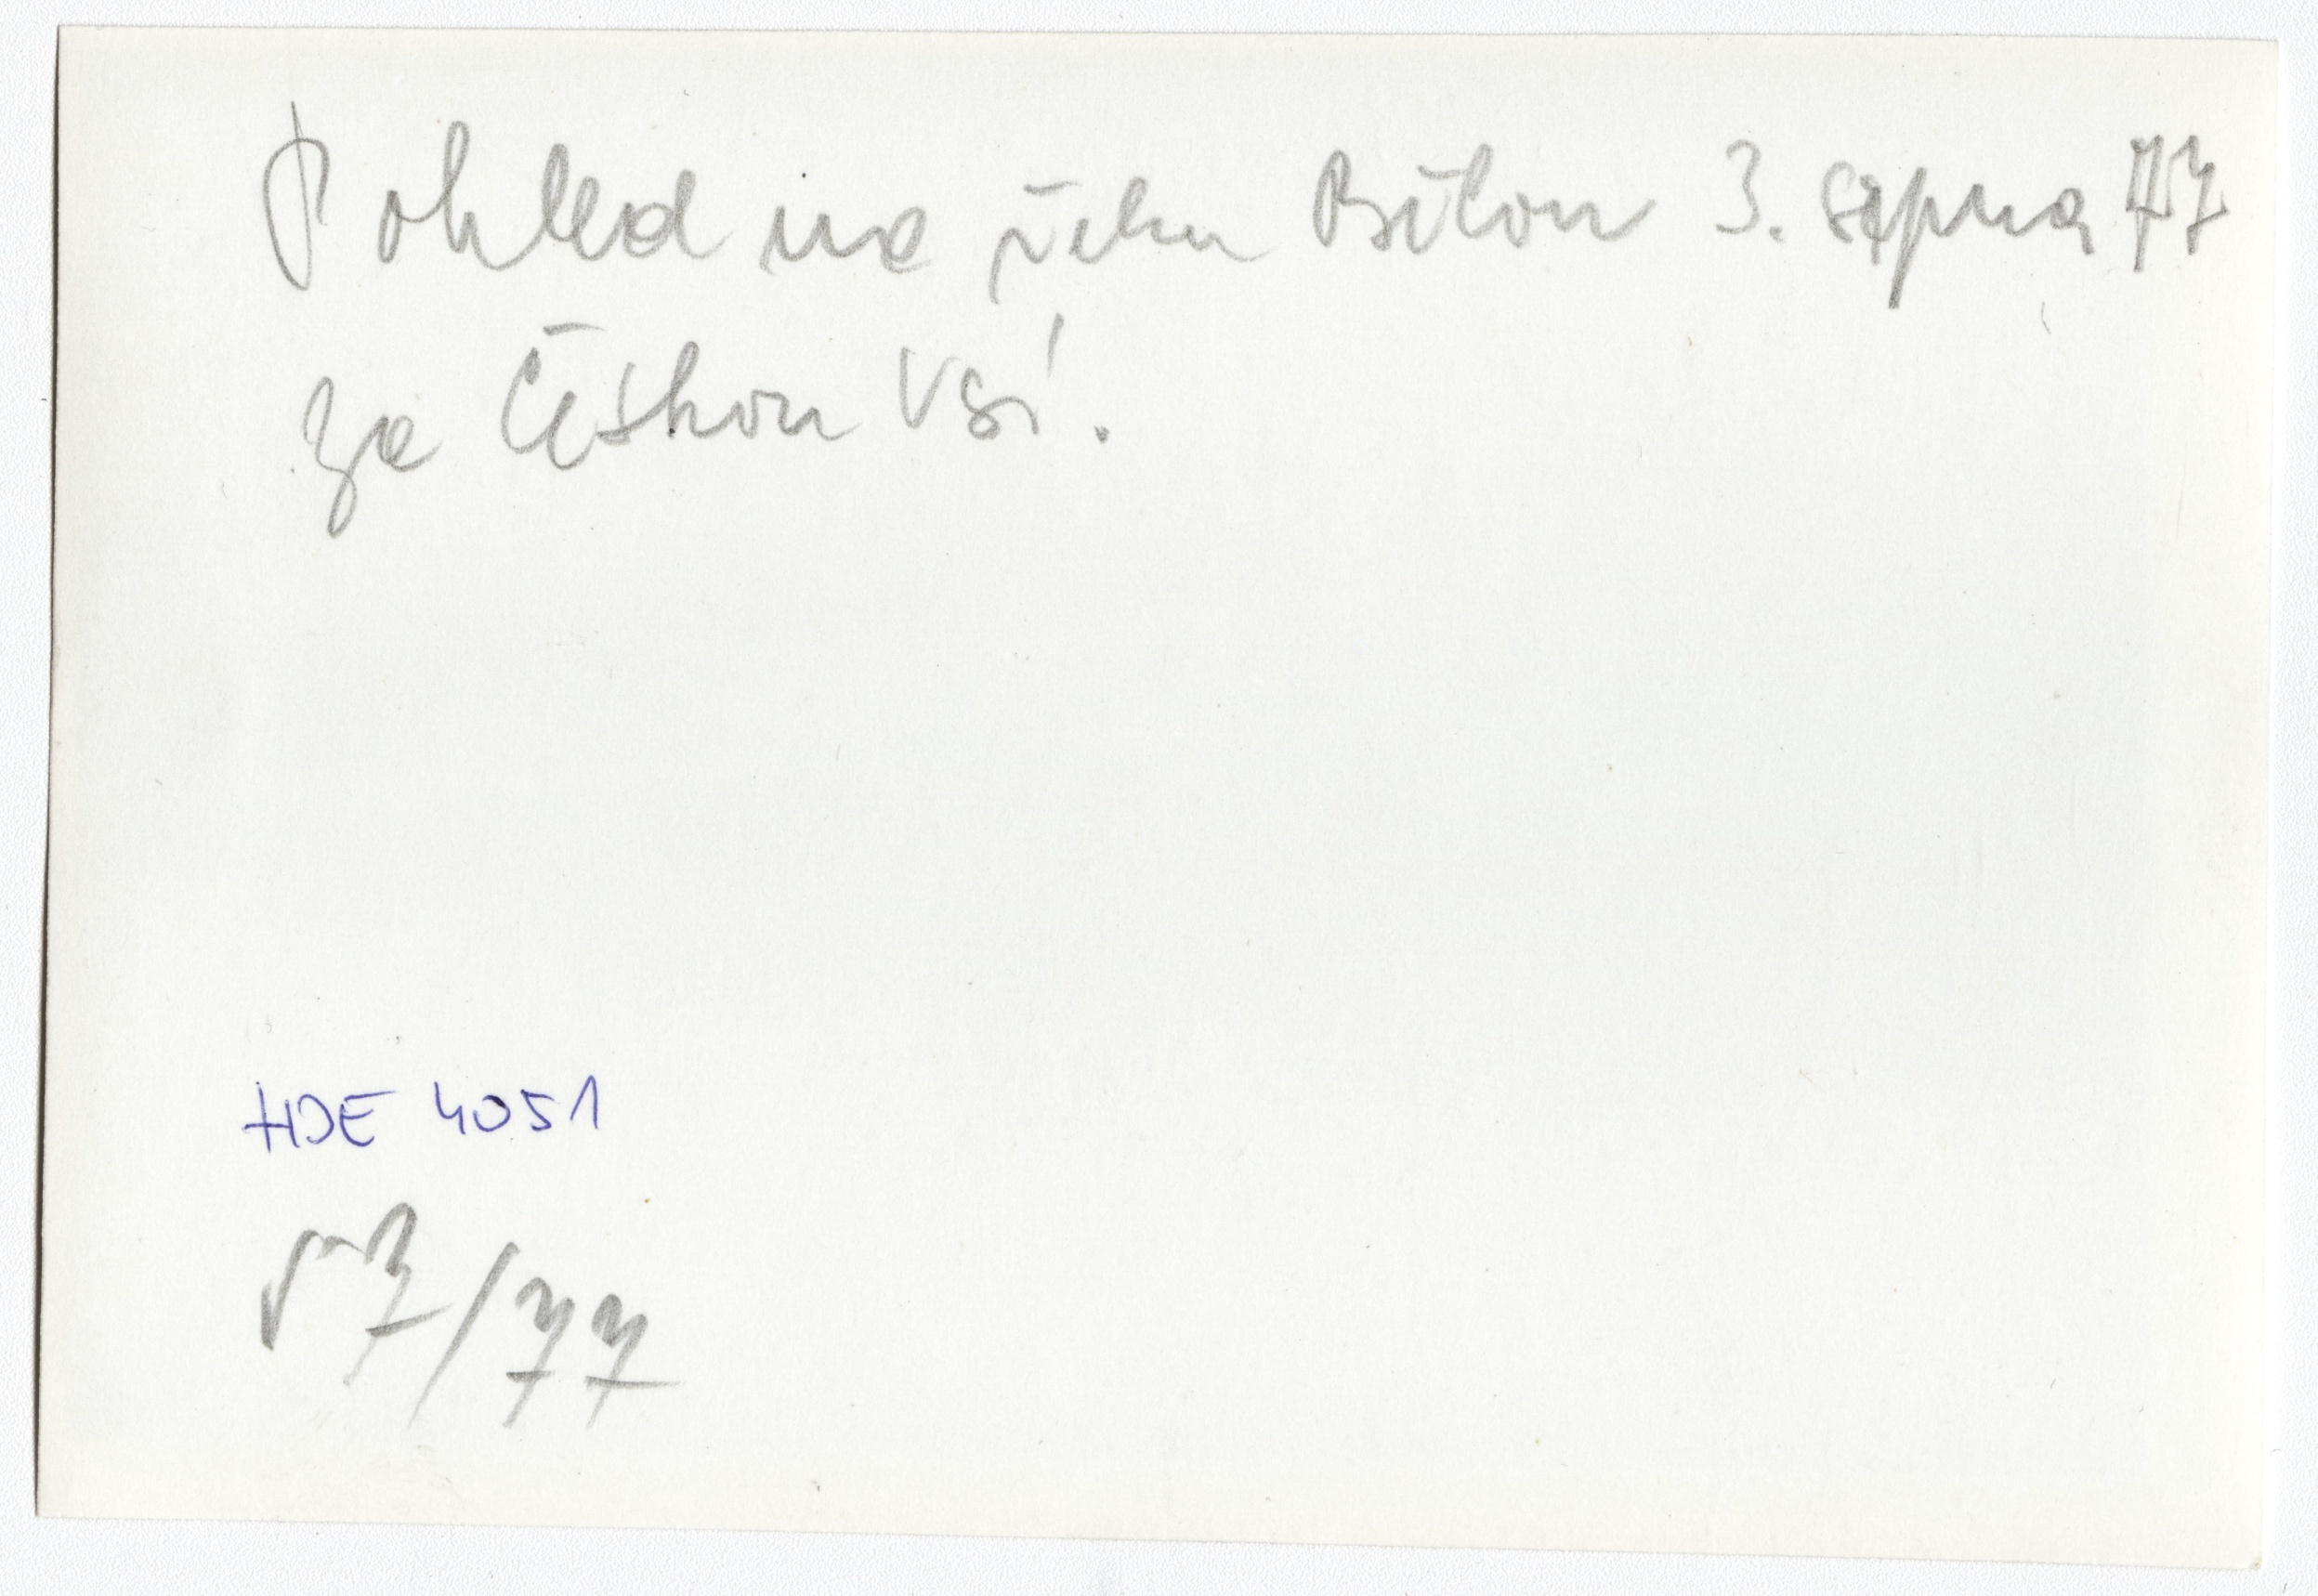 Pohled na řeku Bělou 3. srpna 77
za Českou Vsí.
HDE 4051
57/77